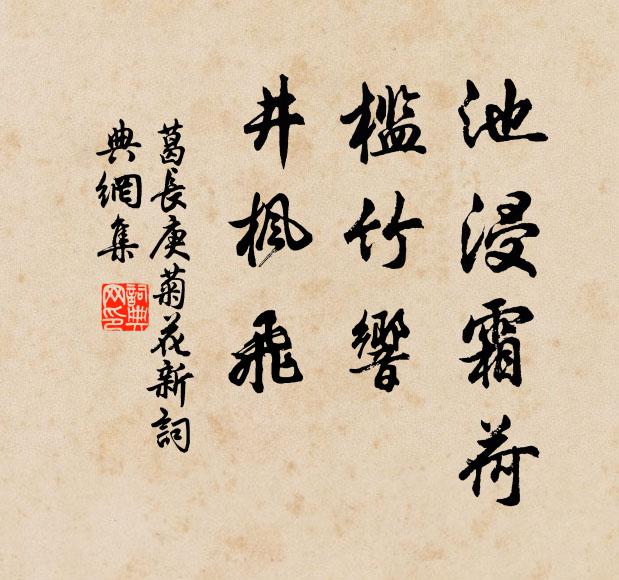 池浸霜荷
檻竹響
井楓飛
葛長庚菊花新詞
典網集
詞典网印